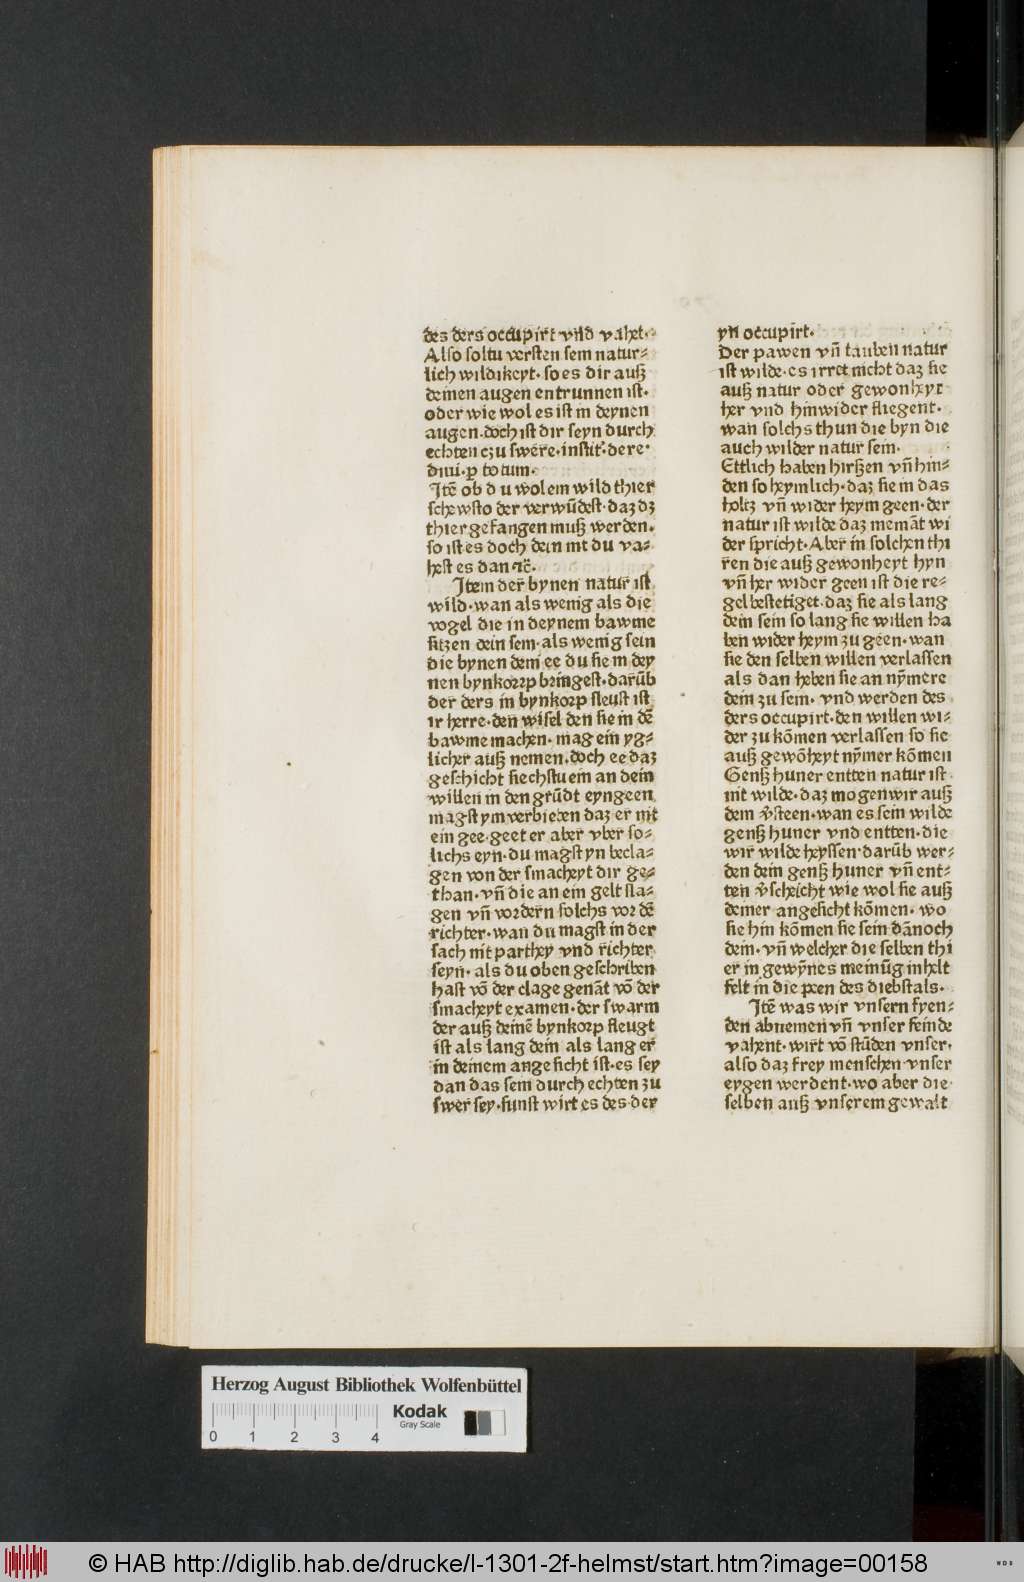 des ders occupirt vnd vahet·
Also soltu versten sein natur⸗
lich wildikeyt· so es dir auß
deinen augen entrunnen ist·
oder wie wol es ist in deynen
augen· doch ist dir seyn durch
echten czu swere· instit· de re·
diui· ꝑ totum·
Itē ob du wol ein wild thier
schewsto der verwūdest· daz dz
thier gefangen muß werden·
so ist es doch dein nit du va⸗
hest es dan ⁊c̄·
Item der bynen natur ist
wild· wan als wenig als die
vogel die in deynem bawme
sitzen dein sein· als wenig sein
die bynen dein ee du sie in dey
nen bynkorrp bringest· darūb
der ders in bynkorp fleust ist
ir herre· den wisel den sie in dē
bawme machen· mag ein yg⸗
licher auß nemen· doch ee daz
geschicht siechstu ein an dein
willen in den grūdt eyngeen
magst ym verbieten daz er nit
ein gee· geet er aber vber so⸗
lichs eyn· du magst yn becla⸗
gen von der smacheyt dir ge⸗
than· vn̄ die an ein gelt sla⸗
gen vn̄ vordern solchs vor dē
richter· wan du magst in der
sach nit parthey vnd richter
seyn· als du oben geschriben
hast vō der clage genāt vō der
smacheyt examen· der swarm
der auß deinē bynkorp fleugt
ist als lang dein als lang er
in deinem angesicht ist· es sey
dan das sein durch echten zu
swer sey· sunst wirt es des der
yn occupirt·
Der pawen vn̄ tauben natur
ist wilde· es irret nicht daz sie
auß natur oder gewonheyt
her vnd hinwider fliegent·
wan solchs thun die byn die
auch wilder natur sein·
Ettlich haben hirßen vn̄ hin⸗
den so heymlich· daz sie in das
holtz vn̄ wider heym geen· der
natur ist wilde daz niemāt wi
der spricht· Aber in solchen thi
ren die auß gewonheyt hyn
vn̄ her wider geen ist die re⸗
gel bestetiget· daz sie als lang
dein sein so lang sie willen ha
ben wider heym zu geen· wan
sie den selben willen verlassen
als dan heben sie an nȳmere
dein zu sein· vnd werden des
ders occupirt· den willen wi⸗
der zu kōmen verlassen so sie
auß gewōheyt nȳmer kōmen
Genß huner entten natur ist
nit wilde· daz mogen wir auß
dem v̄steen· wan es sein wilde
genß huner vnd entten· die
wir wilde heyssen· darūb wer⸗
den dein genß huner vn̄ ent⸗
ten v̄scheicht wie wol sie auß
deiner angesicht kōmen· wo
sie hin kōmen sie sein dānoch
dein· vn̄ welcher die selben thi
er in gewȳnes meinūg inhelt
felt in die peen des diebstals·
Itē was wir vnsern fyen⸗
den abnemen vn̄ vnser feinde
vahent· wirt vō stūden vnser·
also daz frey menschen vnser
eygen werdent· wo aber die
selben auß vnserem gewalt
Herzog August Bibliothek Wolfenbüttel
Kodak
Gray Scale
0 1 2 3 4
© HAB http://diglib.hab.de/drucke/l-1301-2f-helmst/start.htm?image=00158
WDB